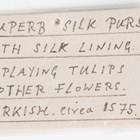 UPERB SILK PURS
TH SILK LINING.
PLAYING TULIPS
OTHER FLOWERS.
RKISH. circa 1575.